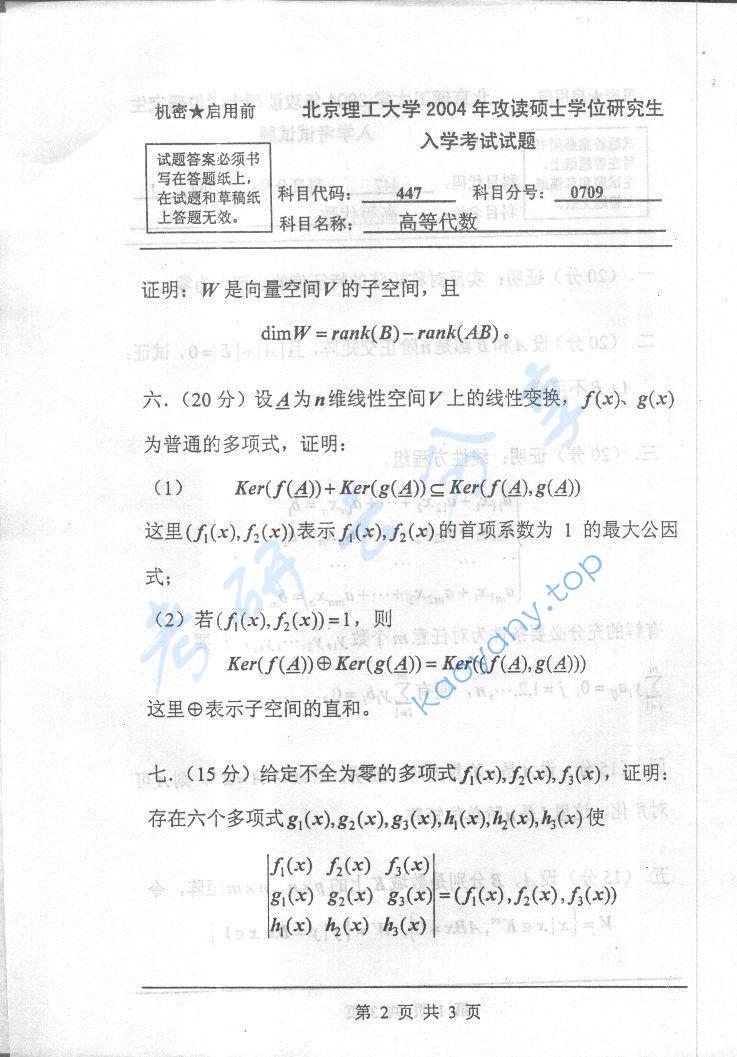 机密★启用前
北京理工大学 2004 年攻读硕士学位研究生
入学考试试题
试题答案必须书
写在答题纸上，
在试题和草稿纸
上答题无效。
科目代码： 447 科目分号： 0709
科目名称： 高等代数
证明：W 是向量空间V 的子空间，且
dimW = rank(B) − rank(AB)。
六．（20 分）设A为n维线性空间V 上的线性变换，f(x)、g(x)
为普通的多项式，证明：
（1） Ker(f(A)) + Ker(g(A)) ⊆ Ker(f(A), g(A))
这里(f₁(x), f₂(x))表示f₁(x), f₂(x)的首项系数为 1 的最大公因
式；
（2）若(f₁(x), f₂(x)) = 1，则
Ker(f(A)) ⊕ Ker(g(A)) = Ker((f(A), g(A)))
这里⊕表示子空间的直和。
七．（15 分）给定不全为零的多项式f₁(x), f₂(x), f₃(x)，证明：
存在六个多项式g₁(x), g₂(x), g₃(x), h₁(x), h₂(x), h₃(x)使
|f₁(x) f₂(x) f₃(x)|
|g₁(x) g₂(x) g₃(x)| = (f₁(x), f₂(x), f₃(x))
|h₁(x) h₂(x) h₃(x)|
第 2 页 共 3 页
考研云分享
kaoyany.top